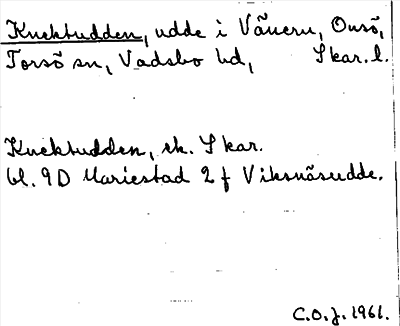 Knektudden, udde i Vänern, Onsö,
Torsö sn, Vadsbo hd, Skar. l.
Knektudden, ek. Skar.
bl. 9D Mariestad 2 f Viksnäsudde.
C.O.J. 1961.